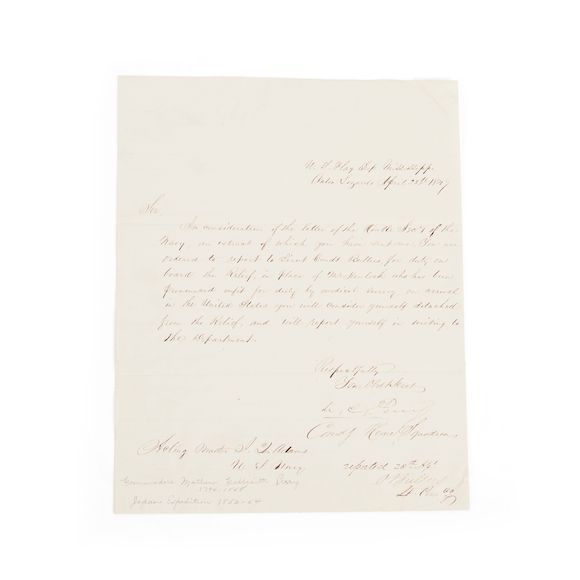 U. S. Flag Ship Mississippi
Anton Lizardo April 28th 1847
Sir,
In consideration of the letter of the Honble Secy of the
Navy, an extract of which you have sent me. You are
ordered to report to Lieut Comdt Bullus for duty on
board the Relief, in place of who has been
pronounced unfit for duty by medical survey on arrival
in the United States you will consider yourself detached
from the Relief, and will report yourself in writing to
the Department.
Respectfully
Your Obt Servt
M. C. Perry
Comdg Home Squadron
Acting Master
U. S. Navy.
reported 28th Apl
Lt Com
Commodore Mathew Galbraith Perry
1794-1858
Japans Expedition 1852-54